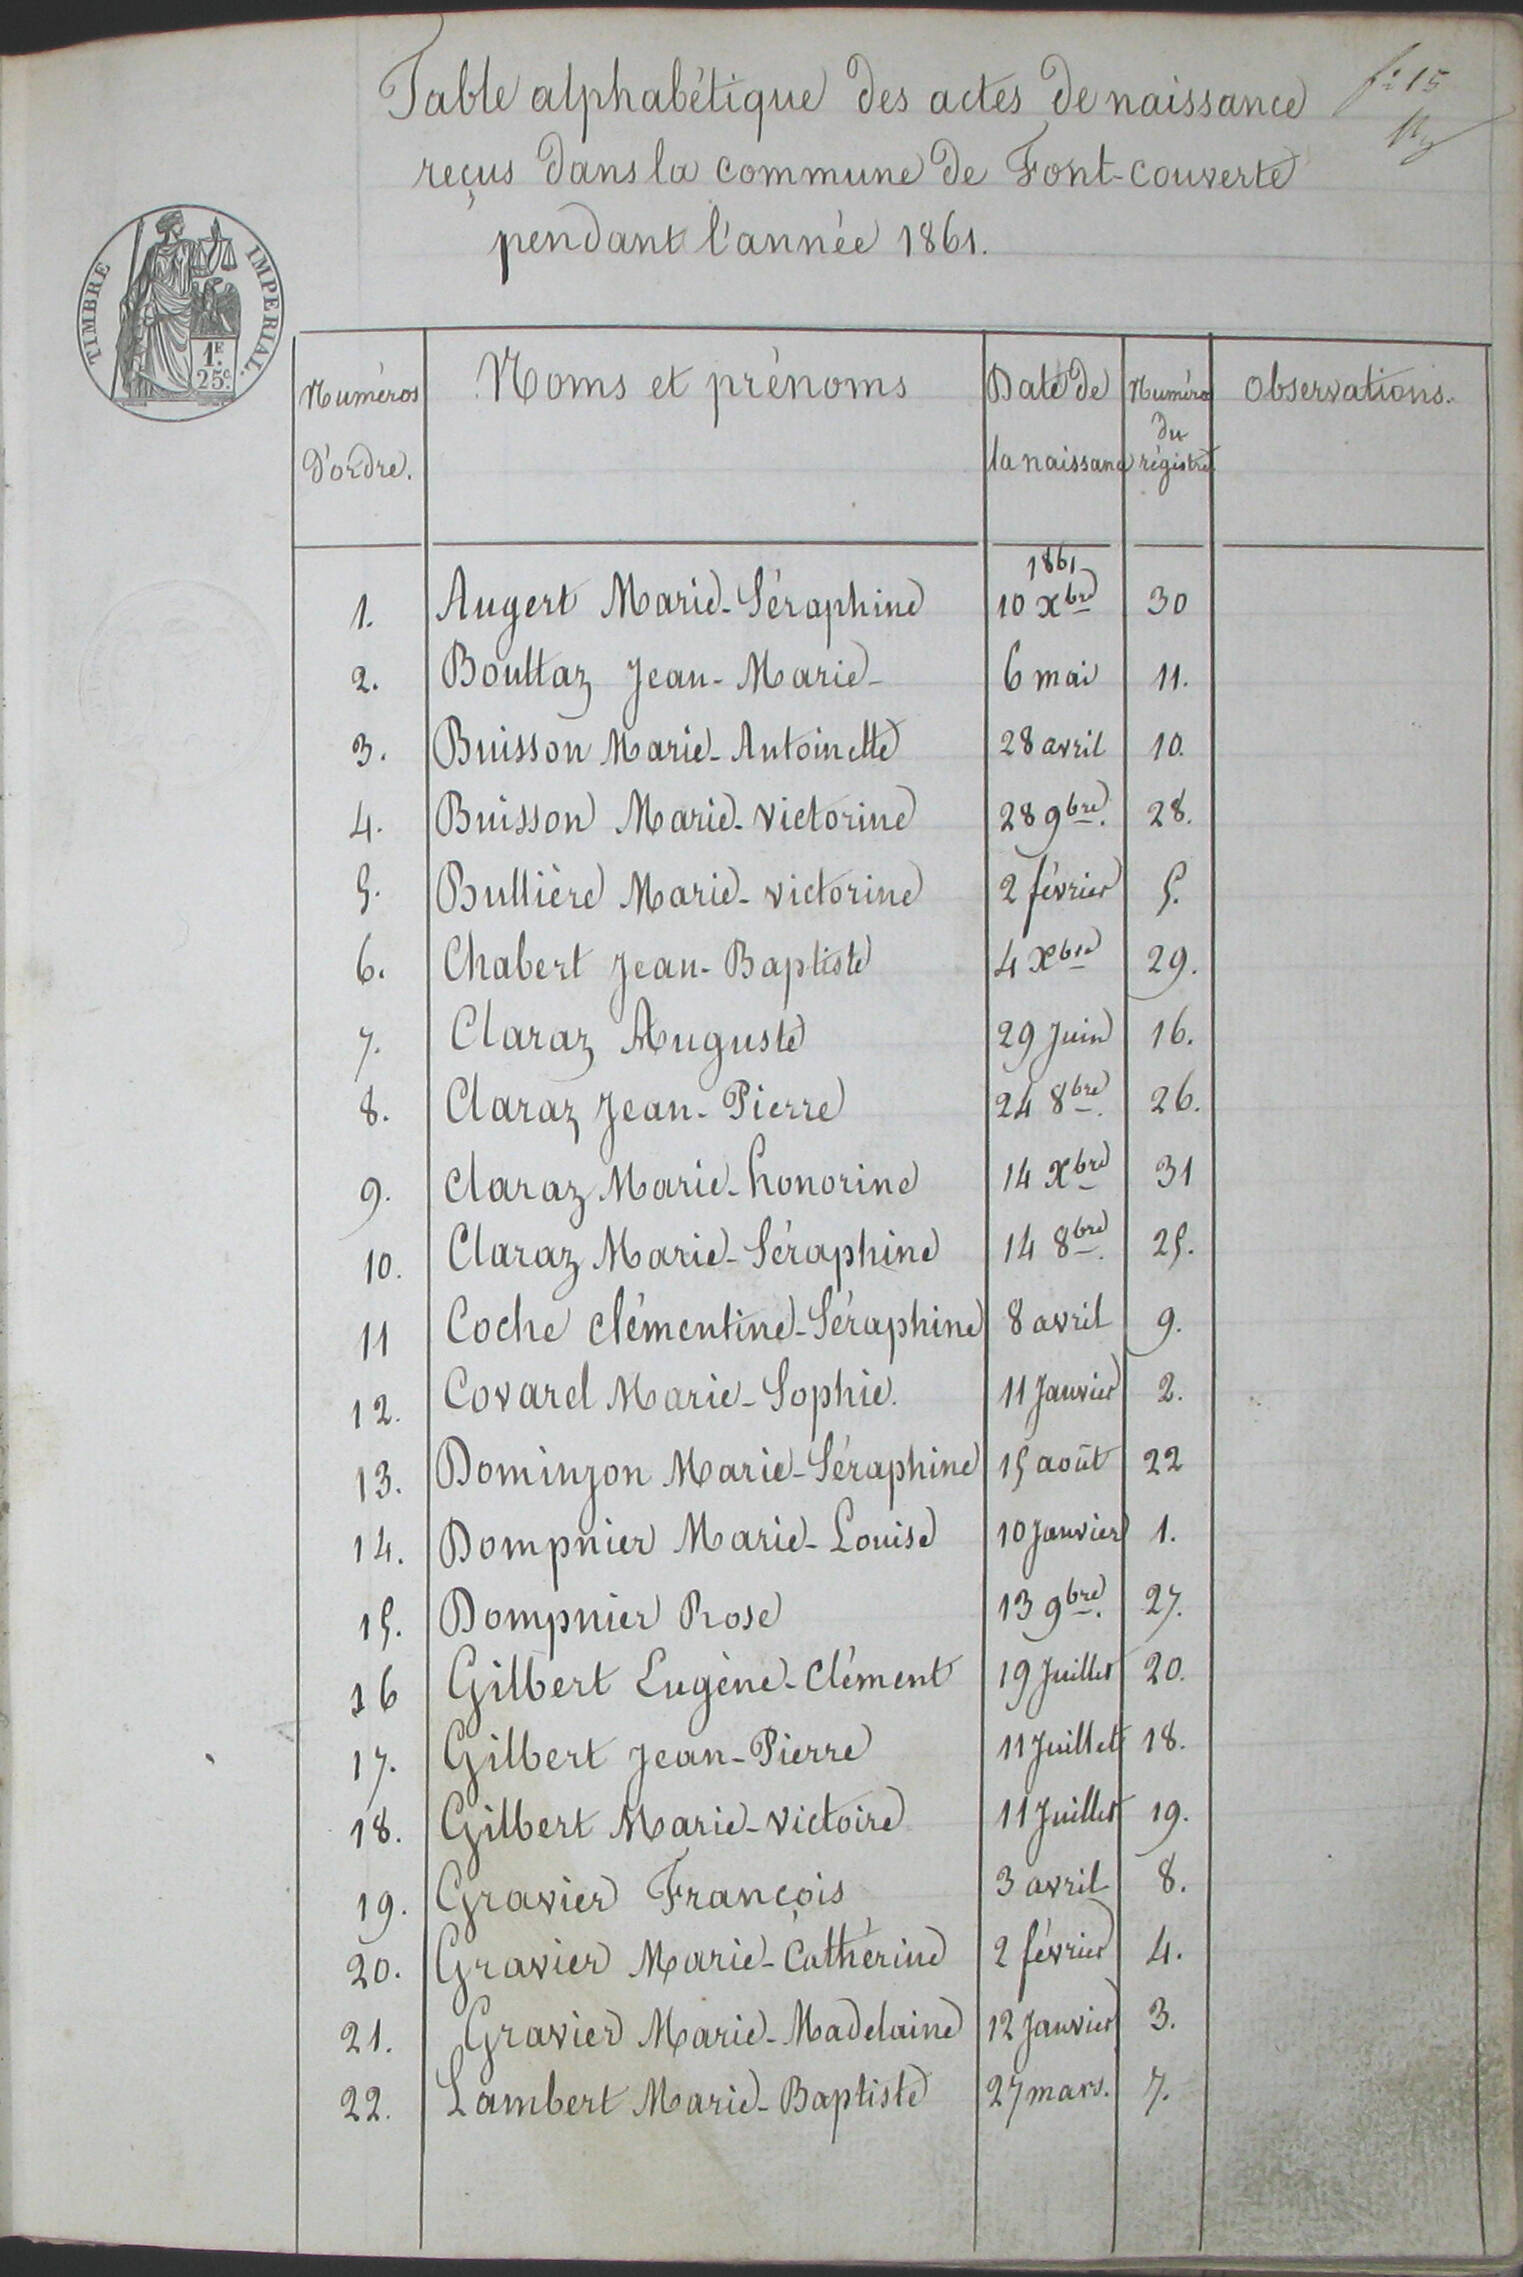 Table alphabétique des actes de naissance
reçus dans la commune de Font-couverte
pendant l'année 1861.
fº 15
TIMBRE IMPERIAL.
1F.
25c.
Numéros d'ordre. Noms et prénoms Date de la naissance Numéro du régistre Observations.
1861
1. Augert Marie-Séraphine 10 Xbre 30
2. Bouttaz Jean-Marie- 6 mai 11.
3. Buisson Marie-Antoinette 28 avril 10.
4. Buisson Marie-victorine 28 9bre. 28.
5. Bullière Marie-victorine 2 février 5.
6. Chabert Jean-Baptiste 4 Xbre 29.
7. Claraz Auguste 29 Juin 16.
8. Claraz Jean-Pierre 24 8bre. 26.
9. Claraz Marie-honorine 14 Xbre 31
10. Claraz Marie-Séraphine 14 8bre. 25.
11 Coche clémentine-Séraphine 8 avril 9.
12. Covarel Marie-Sophie. 11 Janvier 2.
13. Dominjon Marie-Séraphine 15 août 22
14. Dompnier Marie-Louise 10 Janvier 1.
15. Dompnier Rose 13 9bre. 27.
16 Gilbert Eugène-clément 19 Juillet 20.
17. Gilbert Jean-Pierre 11 Juillet 18.
18. Gilbert Marie-victoire 11 Juillet 19.
19. Gravier François 3 avril 8.
20. Gravier Marie-Cathérine 2 février 4.
21. Gravier Marie-Madelaine 12 Janvier 3.
22. Lambert Marie-Baptiste 27 mars. 7.